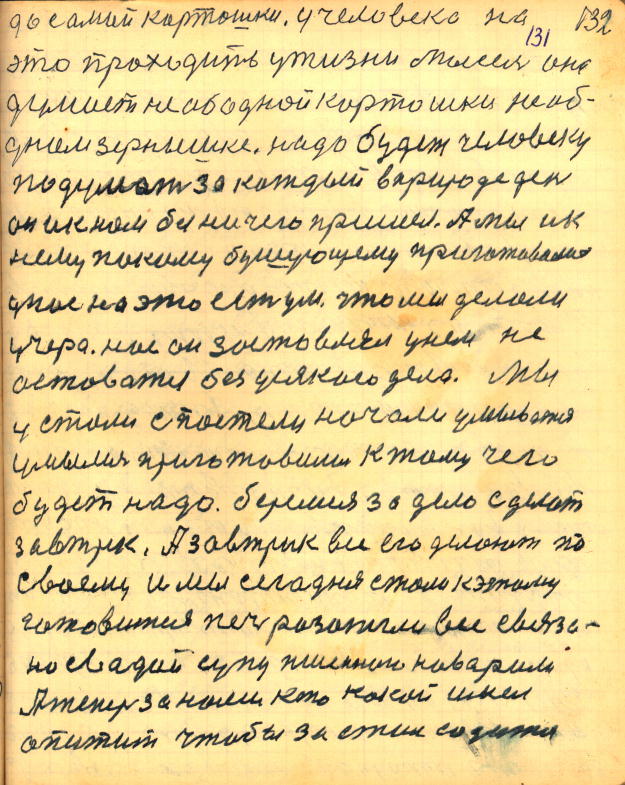 до самый картошки. у человека на
131 132
это проходить ужизни мысля она
думает не ободной картошки не об-
дном зернышке. надо будет человеку
подумат за каждый вприроде ден
он ик нам бы ничего пришел. А мы ик
нему такому бушующему приготовалис
унас на это ест ум. что мы делали
учера. нас он заставлял унем не
оставатся без усякого дела. Мы
у стали с постели начали умыватся
умылися приготовились к тому чего
будет надо. беремся за дело сделат
завтрик. А завтрик все его делают по
своему и мы сегодня стали кэтому
готовится печ разажгли все связа-
но свадой супу пшенного наварили
А тепер за нами кто какой имел
опетит чтобы за стол садится